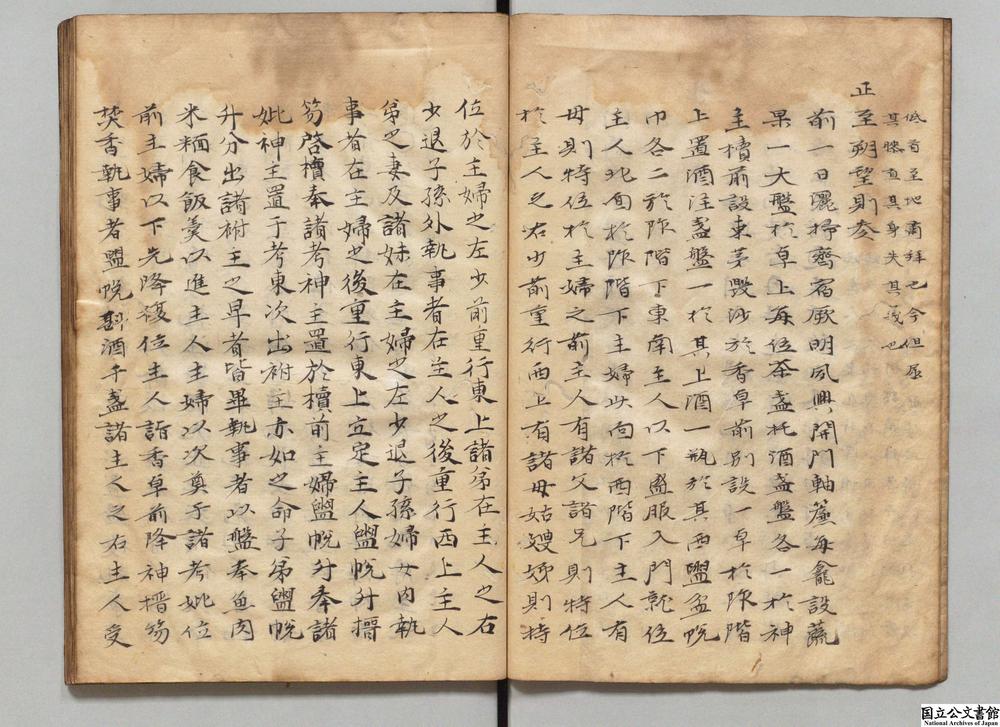 低首至地肅拜也今但屈
其膝直其身失其義也
正至朔望則參
前一日灑掃齊宿厥明夙興開門軸簾每龕設蔬
果一大盤於卓上每位茶盞托酒盞盤各一於神
主櫝前設束茅聚沙於香卓前別設一卓於阼階
上置酒注盞盤一於其上酒一瓶於其西盥盆帨
巾各二於阼階下東南主人以下盛服入門就位
主人北面於阼階下主婦北向於西階下主人有
母則特位於主婦之前主人有諸父諸兄則特位
於主人之右少前重行西上有諸母姑嫂姊則特
位於主婦之左少前重行東上諸弟在主人之右
少退子孫外執事者在主人之後重行西上主人
弟之妻及諸妹在主婦之左少退子孫婦女內執
事者在主婦之後重行東上立定主人盥帨升搢
笏啓櫝奉諸考神主置於櫝前主婦盥帨升奉諸
妣神主置于考東次出祔主亦如之命子弟盥帨
升分出諸祔主之卑者皆畢執事者以盤奉魚肉
米糆食飯羹以進主人主婦以次奠于諸考妣位
前主婦以下先降復位主人詣香卓前降神搢笏
焚香執事者盥帨斟酒于盞諸主人之右主人受
国立公文書館
National Archives of Japan